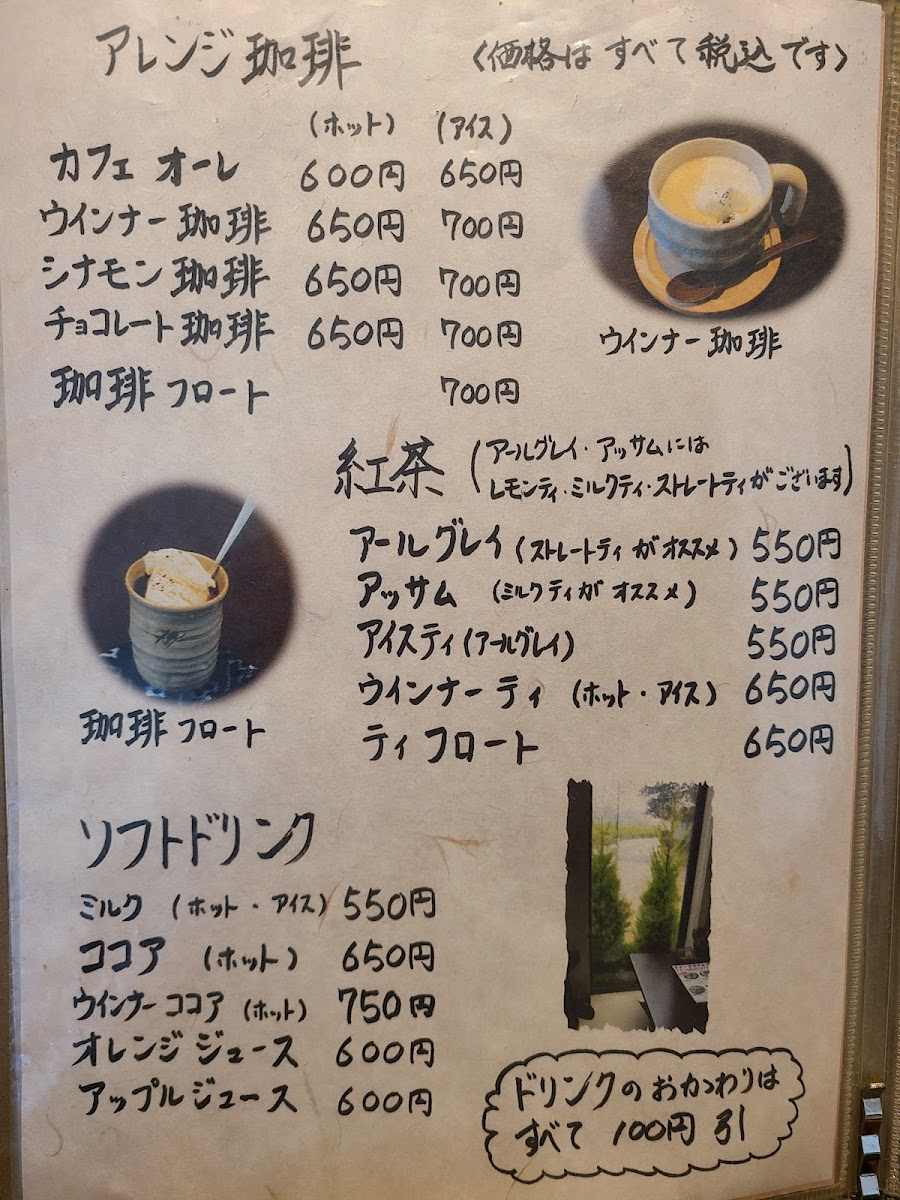 アレンジ 珈琲 〈価格は すべて 税込 です〉
(ホット) (アイス)
カフェ オーレ 600円 650円
ウインナー 珈琲 650円 700円
シナモン 珈琲 650円 700円
チョコレート 珈琲 650円 700円
珈琲 フロート 700円
ウインナー 珈琲
紅茶 (アールグレイ・アッサムには
レモンティ・ミルクティ・ストレートティがございます)
アールグレイ (ストレートティ が オススメ) 550円
アッサム (ミルクティが オススメ) 550円
アイスティ (アールグレイ) 550円
ウインナー ティ (ホット・アイス) 650円
ティ フロート 650円
珈琲 フロート
ソフトドリンク
ミルク (ホット・アイス) 550円
ココア (ホット) 650円
ウインナー ココア (ホット) 750円
オレンジ ジュース 600円
アップル ジュース 600円
ドリンクの おかわりは
すべて 100円 引